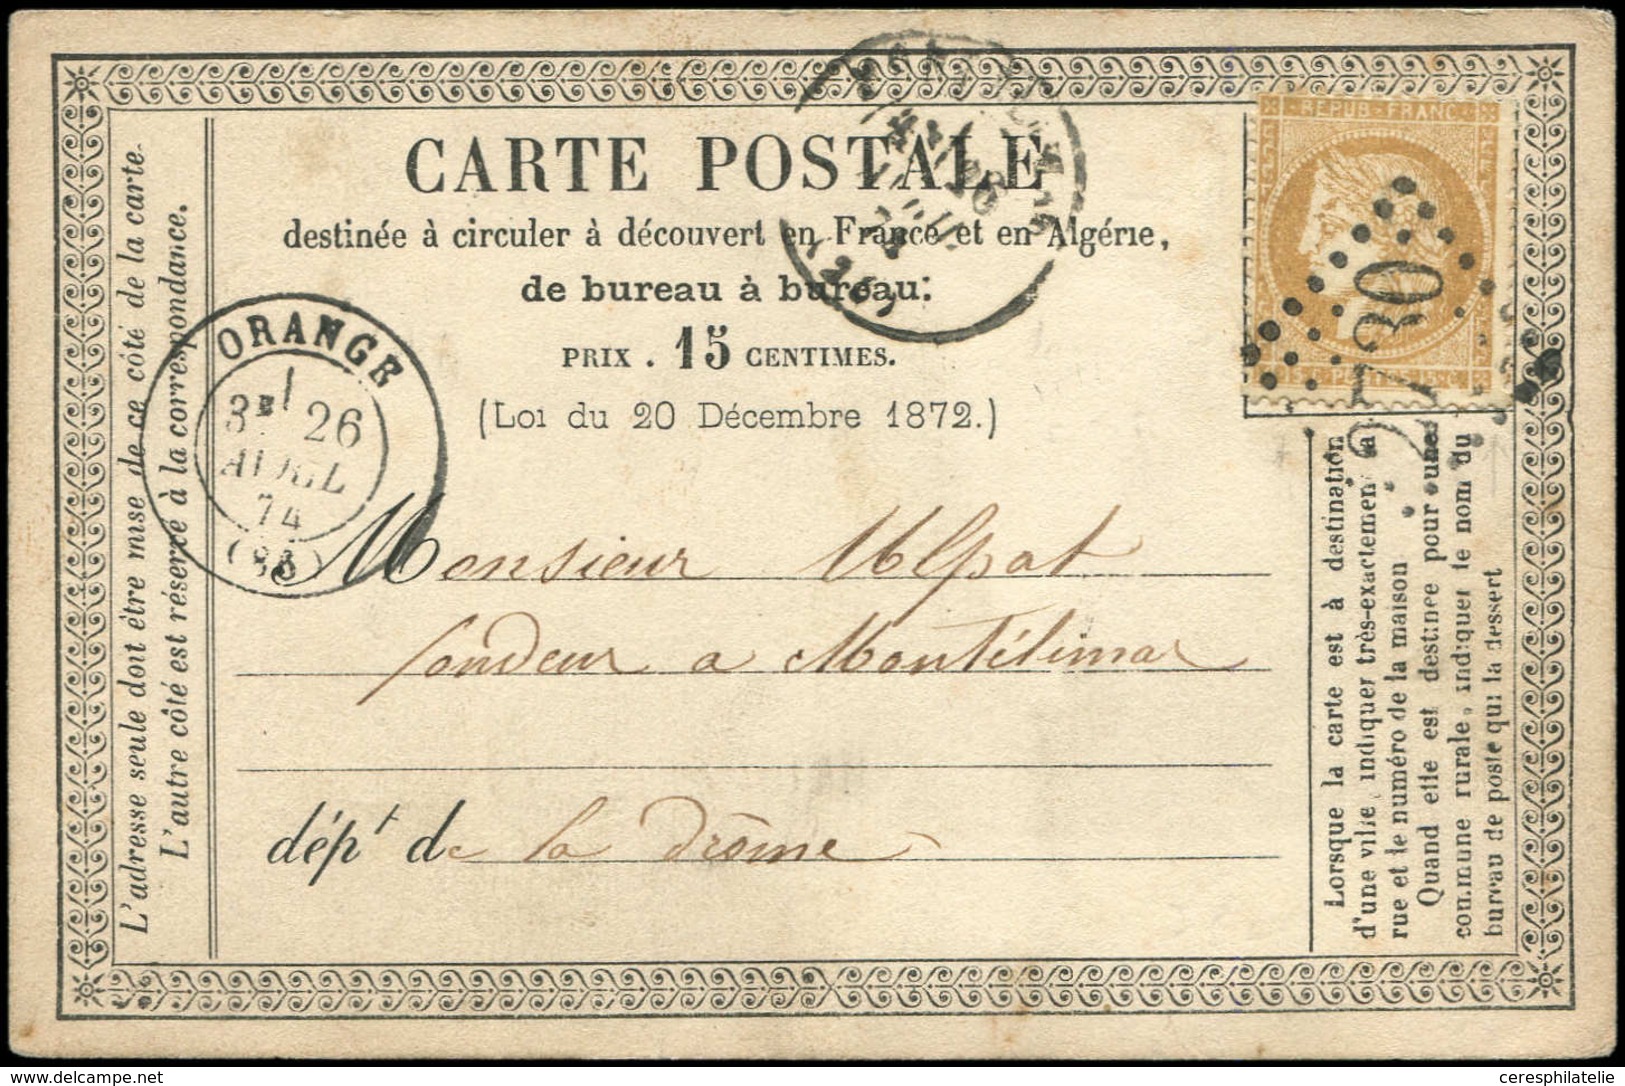 CARTE POSTALE
destinée à circuler à découvert en France et en Algérie,
de bureau à bureau.
PRIX . 15 CENTIMES.
(Loi du 20 Décembre 1872.)
REPUB FRANC
2730
ORANGE
26
AVRIL
74
L'adresse seule doit être mise de ce côté de la carte.
L'autre côté est réservé à la correspondance.
Monsieur Ulpat
fondeur a Montélimar
dép.t de la Drôme
Lorsque la carte est à destination
d'une ville, indiquer très-exactement la
rue et le numéro de la maison
Quand elle est destinée pour une
commune rurale, indiquer le nom du
bureau de poste qui la dessert
delcampe.net
ceresphilatelie